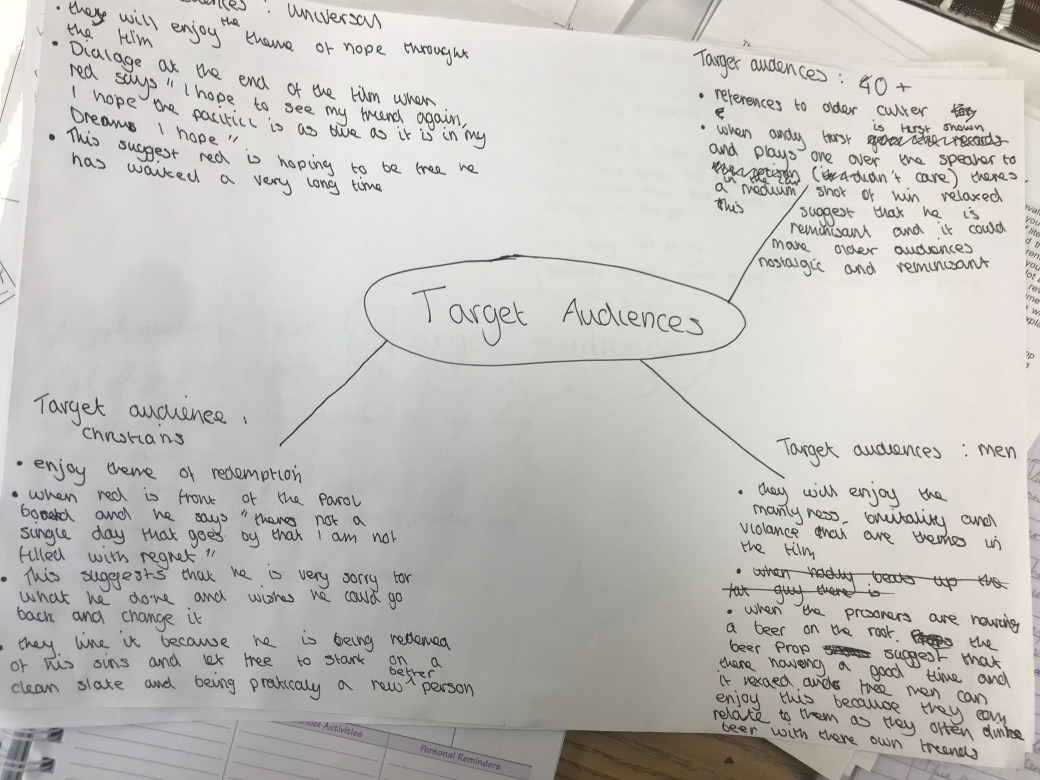 audiences : Universal
• they will enjoy the theme of hope throught
the film
• Dialage at the end of the film when
red says "I hope to see my friend again,
I hope the pacificc is as blue as it is in my
Dreams I hope"
• This suggest red is hoping to be free he
has waited a very long time
Target audences : 40 +
• references to older culter
• when andy first is first shown
and plays one over the speaker to
(didn't care) theres
a medium shot of him relaxed
this suggest that he is
reminisant and it could
make older audiences
nostalgic and reminisant
Target Audiences
Target audience :
Christians
• enjoy theme of redemption
• when red is front of the Parol
board and he says "theres not a
single day that goes by that I am not
filled with regret"
• This suggests that he is very sorry for
what he done and wishes he could go
back and change it
• they like it because he is being redemed
of his sins and let free to start on a
clean slate and being praticaly a new better person
Target audiences : men
• they will enjoy the
manlyness, brutality and
violance that are themes in
the film
• when hadly beats up the
fat guy there is
• when the prisoners are having
a beer on the roof. the
beer prop suggest that
there having a good time and
it relaxed and free men can
enjoy this because they can
relate to them as they often drinke
beer with there own freends
School Activities
Personal Reminders